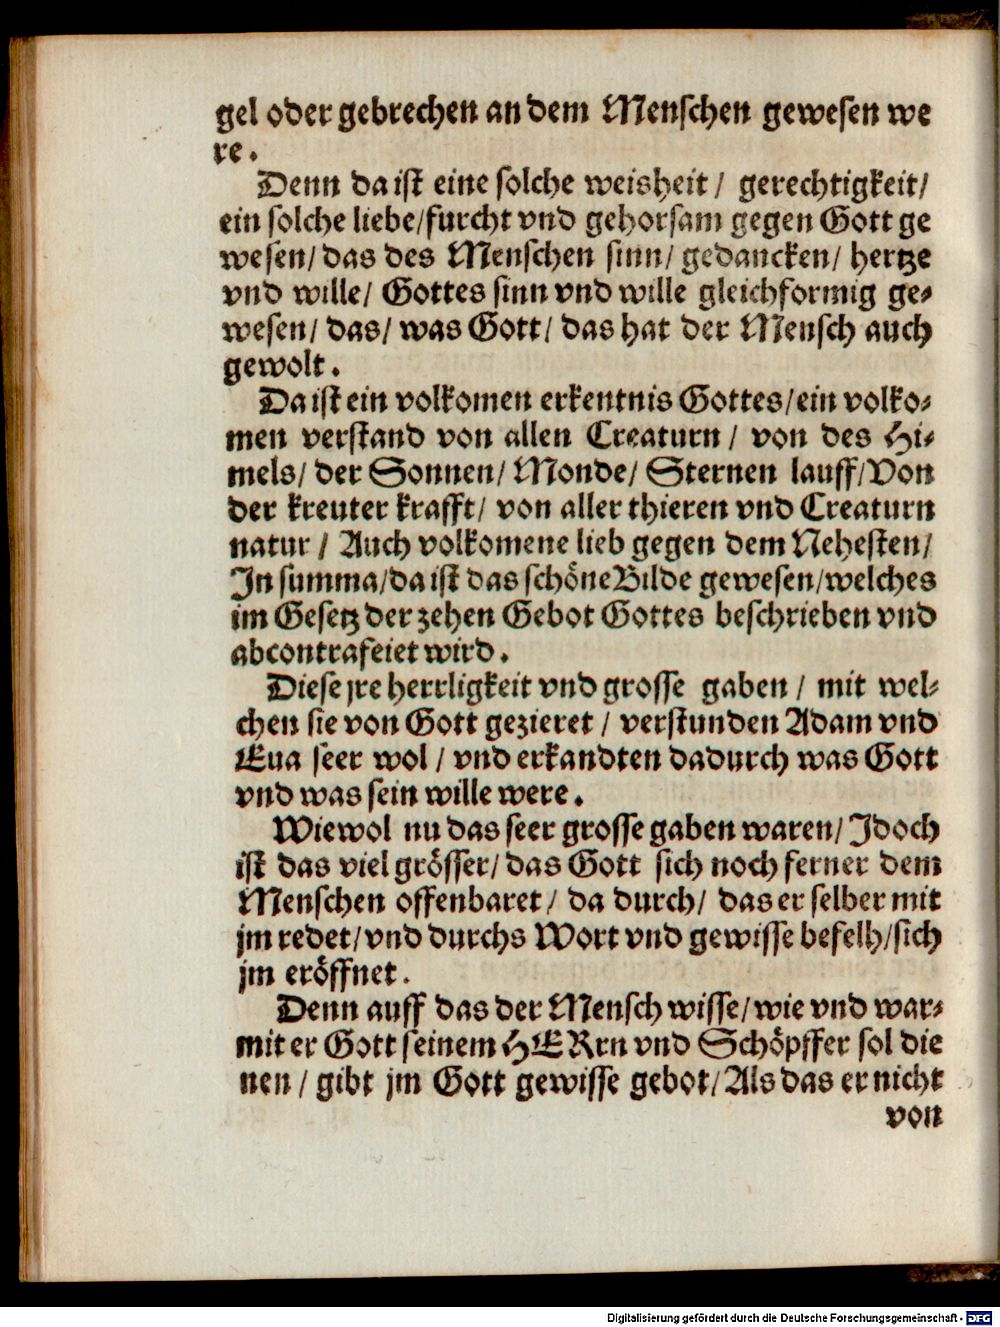 gel oder gebrechen an dem Menschen gewesen we
re.
Denn da ist eine solche weisheit / gerechtigkeit/
ein solche liebe/furcht vnd gehorsam gegen Gott ge
wesen/ das des Menschen sinn/ gedancken/ hertze
vnd wille/ Gottes sinn vnd wille gleichformig ge⸗
wesen/ das/ was Gott/ das hat der Mensch auch
gewolt.
Da ist ein volkomen erkentnis Gottes/ein volko⸗
men verstand von allen Creaturn / von des Hi⸗
mels/ der Sonnen/ Monde/ Sternen lauff/Von
der kreuter krafft/ von aller thieren vnd Creaturn
natur / Auch volkomene lieb gegen dem Nehesten/
In summa/da ist das schöne Bilde gewesen/welches
im Gesetz der zehen Gebot Gottes beschrieben vnd
abcontrafeiet wird.
Diese jre herrligkeit vnd grosse gaben / mit wel⸗
chen sie von Gott gezieret / verstunden Adam vnd
Eua seer wol / vnd erkandten dadurch was Gott
vnd was sein wille were.
Wiewol nu das seer grosse gaben waren/ Jdoch
ist das viel grösser/ das Gott sich noch ferner dem
Menschen offenbaret/ da durch/ das er selber mit
jm redet/vnd durchs Wort vnd gewisse befelh/sich
jm eröffnet.
Denn auff das der Mensch wisse/wie vnd war⸗
mit er Gott seinem HERrn vnd Schöpffer sol die
nen / gibt jm Gott gewisse gebot/Als das er nicht
von
Digitalisierung gefördert durch die Deutsche Forschungsgemeinschaft - DFG